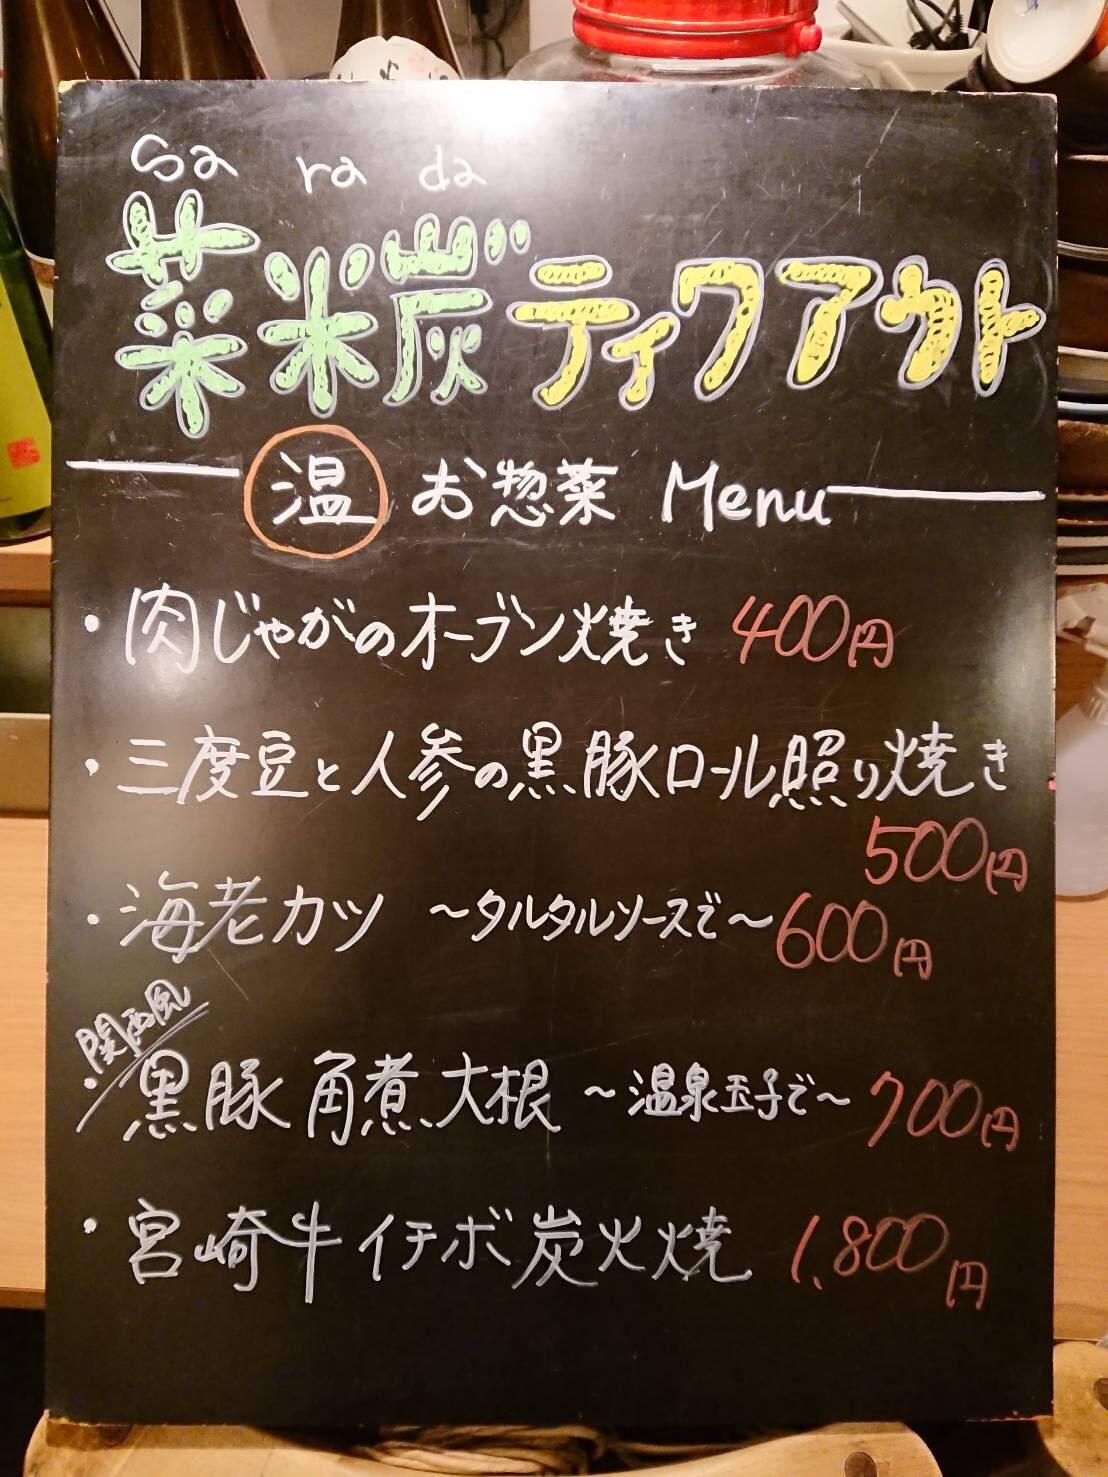 Sa ra da
菜米炭゛ティクアウト
温 お惣菜 Menu
・肉じゃがのオーブン焼き 400円
・三度豆と人参の黒豚ロール照り焼き
500円
・海老カツ ～タルタルソースで～ 600円
関西風
・黒豚角煮大根 ～温泉玉子で～ 700円
・宮崎牛イチボ炭火焼 1,800円